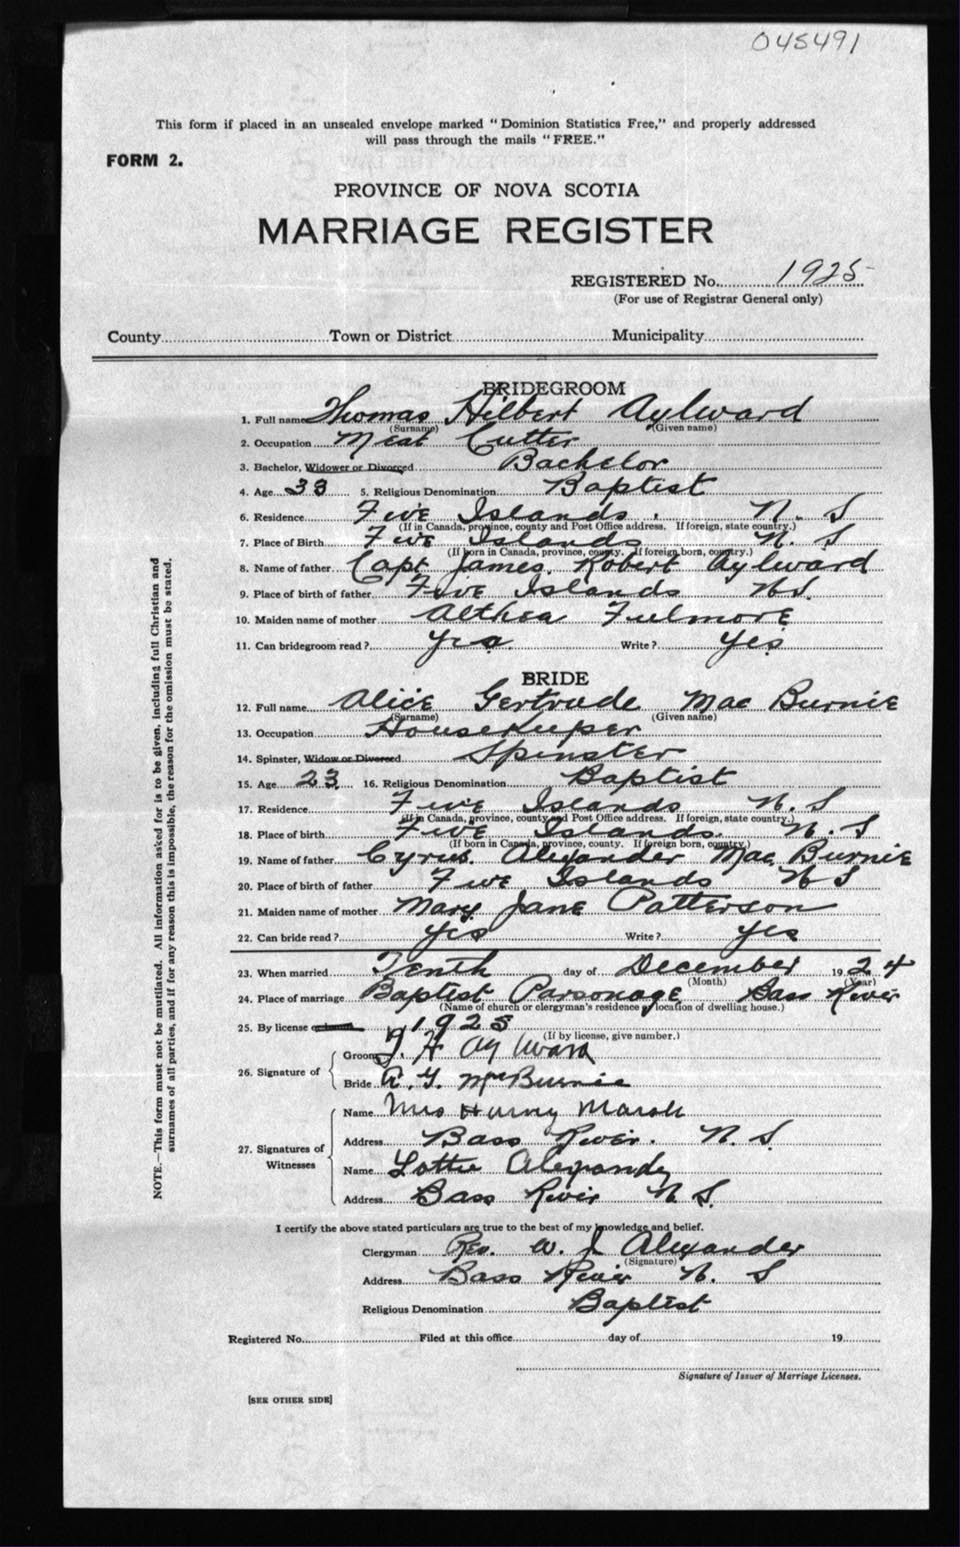 045491
This form if placed in an unsealed envelope marked "Dominion Statistics Free," and properly addressed
will pass through the mails "FREE."
FORM 2.
PROVINCE OF NOVA SCOTIA
MARRIAGE REGISTER
REGISTERED No. 1925
(For use of Registrar General only)
County Town or District Municipality
BRIDEGROOM
1. Full name Thomas Hilbert Aylward
(Surname) (Given name)
2. Occupation Meat Cutter
3. Bachelor, Widower or Divorced Bachelor
4. Age 33 5. Religious Denomination Baptist
6. Residence Five Islands. N. S
(If in Canada, province, county and Post Office address. If foreign, state country.)
7. Place of Birth Five Islands N. S
(If born in Canada, province, county. If foreign born, country.)
8. Name of father Capt James. Robert Aylward
9. Place of birth of father Five Islands N.S.
10. Maiden name of mother Althea Fulmore
11. Can bridegroom read? Yes. Write? Yes
BRIDE
12. Full name Alice Gertrude Mac Burnie
(Surname) (Given name)
13. Occupation Housekeeper
14. Spinster, Widow or Divorced Spinster
15. Age 23 16. Religious Denomination Baptist
17. Residence Five Islands N. S
(If in Canada, province, county and Post Office address. If foreign, state country.)
18. Place of birth Five Islands. N. S
(If born in Canada, province, county. If foreign born, country.)
19. Name of father Cyrus. Alexander Mac Burnie
20. Place of birth of father Five Islands N S
21. Maiden name of mother Mary Jane Patterson
22. Can bride read? Yes Write? Yes
23. When married Tenth day of December 1924
(Month) (Year)
24. Place of marriage Baptist Parsonage Bass River
(Name of church or clergyman's residence or location of dwelling house.)
25. By license 1925
(If by license, give number.)
26. Signature of
Groom T. H Aylward
Bride A. G. McBurnie
27. Signatures of Witnesses
Name Mrs Harvey Marsh
Address Bass River. N. S.
Name Lottie
Address Bass River N. S.
I certify the above stated particulars are true to the best of my knowledge and belief.
Clergyman Rev. W. J. Alexander
(Signature)
Address Bass River N. S
Religious Denomination Baptist
Registered No. Filed at this office day of 19
Signature of Issuer of Marriage Licenses.
[SEE OTHER SIDE]
NOTE.—This form must not be mutilated. All information asked for is to be given, including full Christian and
surnames of all parties, and if for any reason this is impossible, the reason for the omission must be stated.